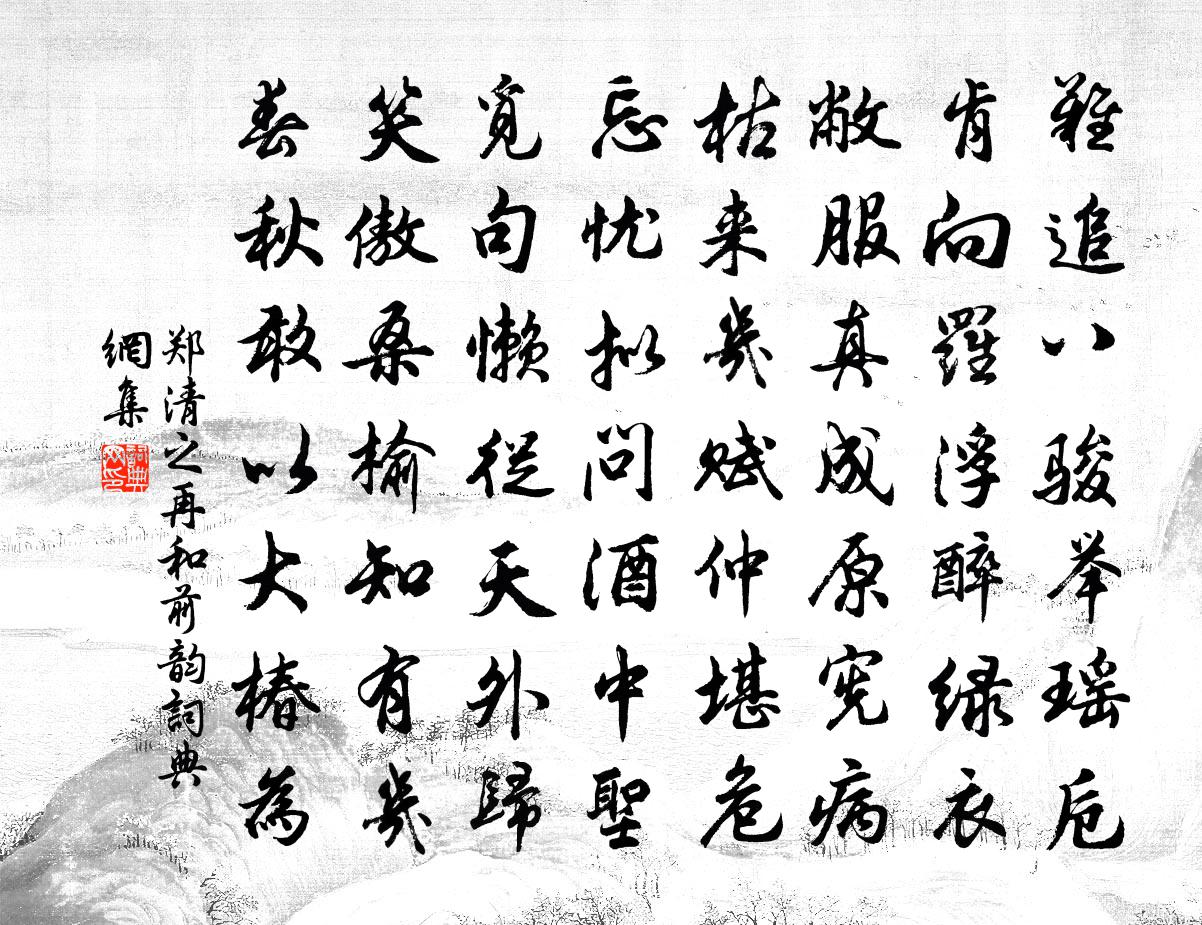 難追八骏举瑶卮
肯向羅浮醉绿衣
敝服真成原宪病
枯来幾赋仲堪危
忘忧拟问酒中聖
覓句懒從天外歸
笑傲桑榆知有幾
春秋敢以大椿為
郑清之再和前韵詞典
網集
詞典网印